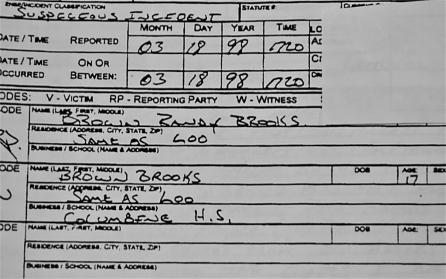 ENSE/INCIDENT CLASSIFICATION STATUTE #
SUSPICIOUS INCIDENT
MONTH DAY YEAR TIME LO
DATE / TIME REPORTED 03 18 98 1720
DATE / TIME ON OR
OCCURRED BETWEEN: 03 18 98 1720
ODES: V - VICTIM RP - REPORTING PARTY W - WITNESS
CODE NAME (LAST, FIRST, MIDDLE)
BROWN RANDY BROOKS
RESIDENCE (ADDRESS, CITY, STATE, ZIP)
SAME AS LOO
BUSINESS / SCHOOL (NAME & ADDRESS)
CODE NAME (LAST, FIRST, MIDDLE) DOB AGE SEX
BROWN BROOKS 17
RESIDENCE (ADDRESS, CITY, STATE, ZIP)
SAME AS LOO
BUSINESS / SCHOOL (NAME & ADDRESS)
COLUMBINE H.S.
CODE NAME (LAST, FIRST, MIDDLE) DOB AGE SEX
RESIDENCE (ADDRESS, CITY, STATE, ZIP)
BUSINESS / SCHOOL (NAME & ADDRESS)